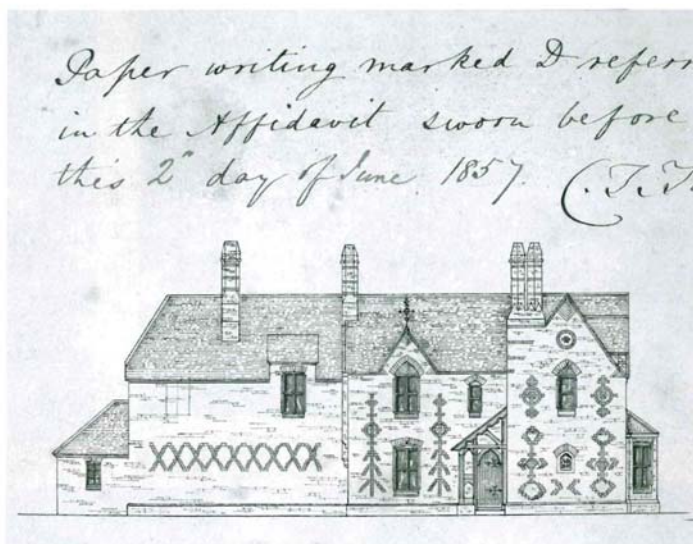 Paper writing marked D referr
in the Affidavit sworn before
this 2" day of June 1857. C.T.T